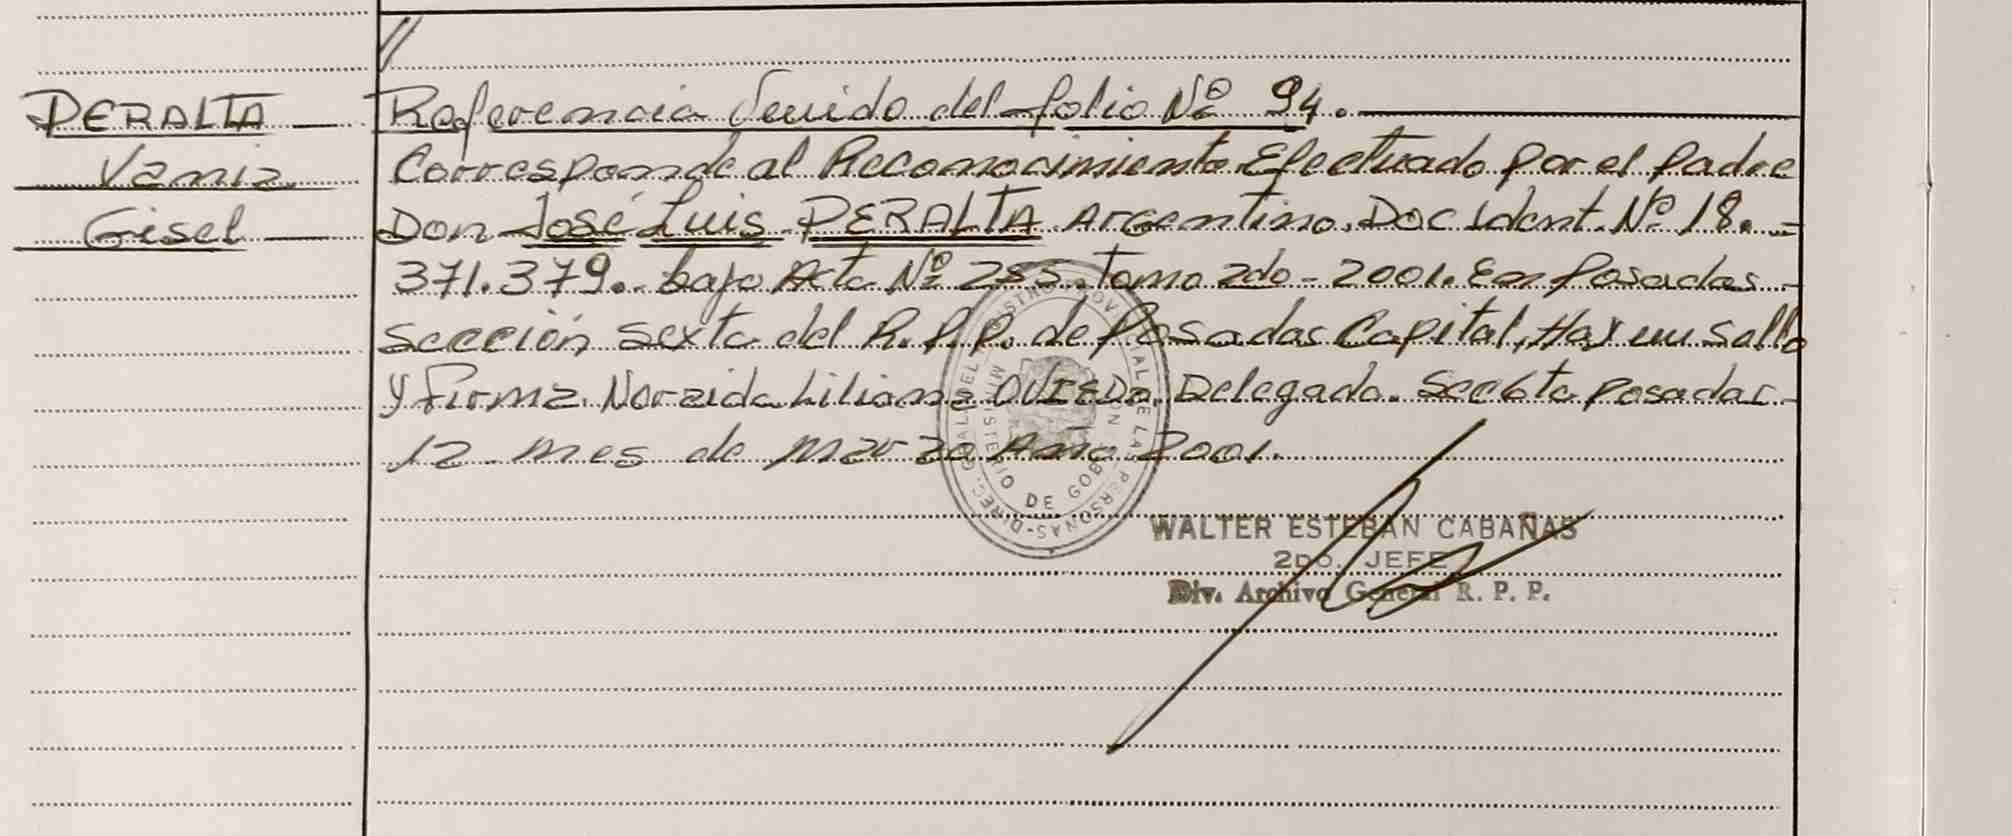 //
PERALTA
Vania
Gisel
Referencia Venido del folio Nº 94.
Corresponde al Reconocimiento Efectuado por el Padre
Don José Luis PERALTA Argentino, Doc Ident. Nº 18.-
371.379.- bajo Acta Nº 255. Tomo 2do - 2001. En Posadas -
Sección Sexta del R.P.P. de Posadas Capital, Hay un Sello
y firma. Noraida Liliana OVIEDO, Delegada. Sec 6ta Posadas -
12 - mes de Marzo Año 2001.
DIREC. GRAL DEL REGISTRO PROVINCIAL DE LAS PERSONAS
MINISTERIO DE GOB
WALTER ESTEBAN CABAÑAS
2DO. JEFE
Div. Archivo General R. P. P.